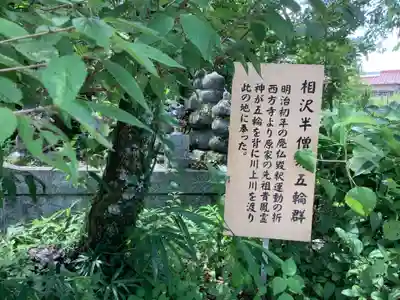 相沢半僧坊五輪群
明治初年の廃仏毀釈運動の折
西方寺より原家の先祖貴風霊
神が五輪を背に川上川を渡り
此の地に奉った。